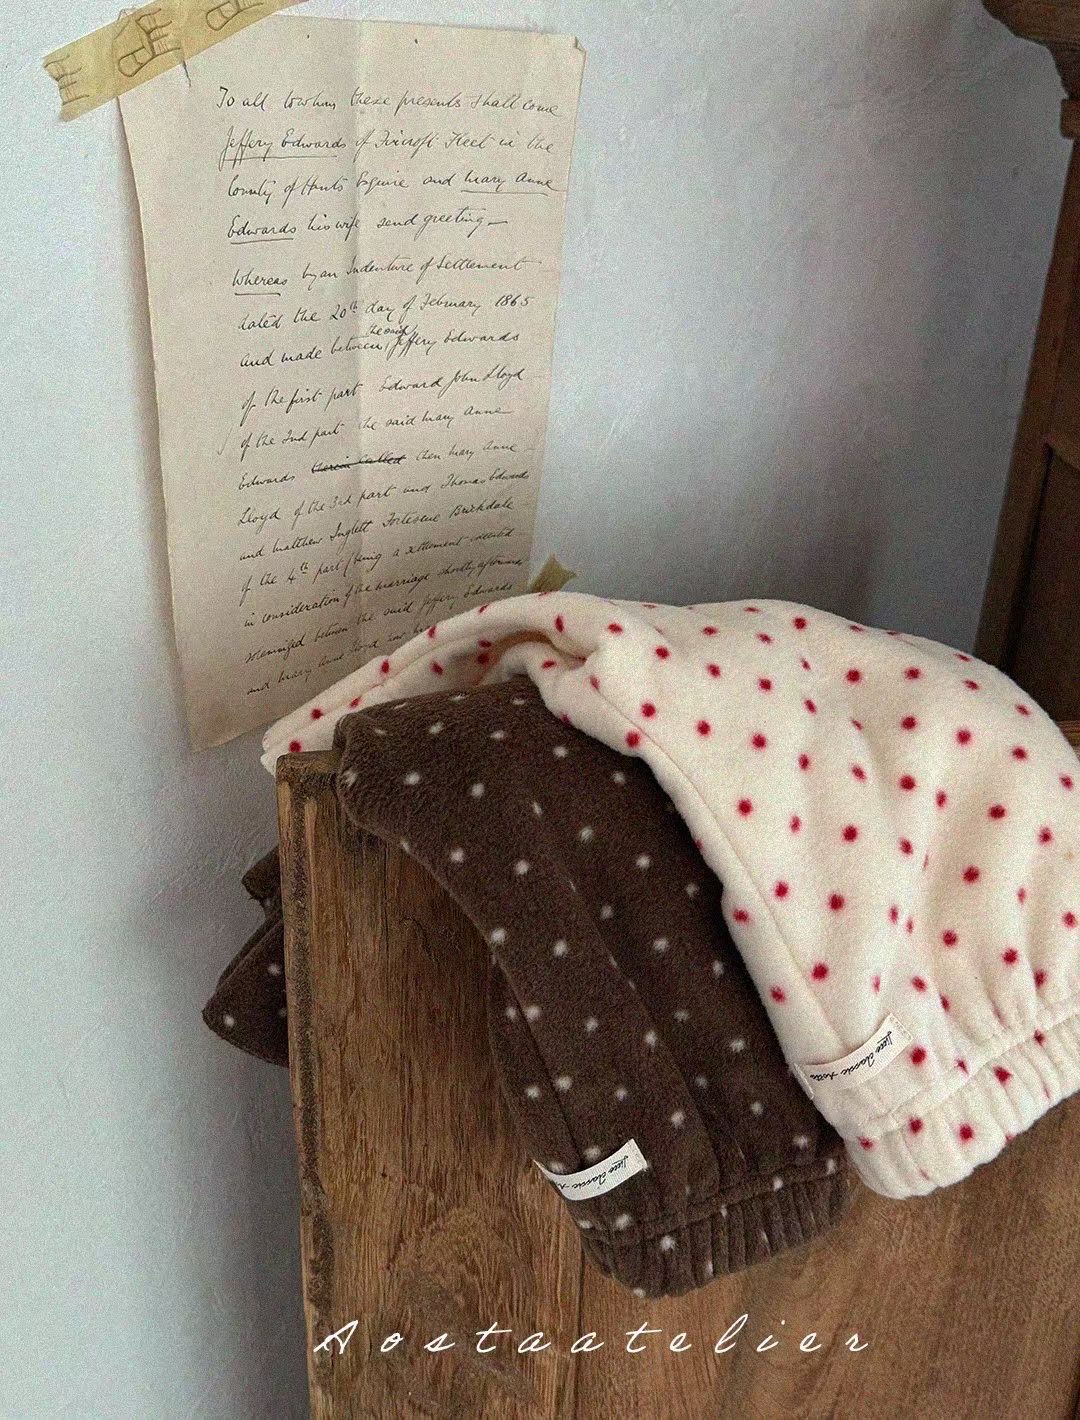 To all to whom these presents shall come
Jeffery Edwards of Fleet in the
County of Hants Esquire and Mary Anne
Edwards his wife send greeting
Whereas by an Indenture of Settlement
dated the 20th day of February 1865
and made between the said Jeffery Edwards
of the first part Edward John Lloyd
of the 2nd part the said Mary Anne
Edwards then Mary Anne
Lloyd of the 3rd part and Thomas Edwards
and Matthew Inglett Fortescue Brickdale
of the 4th part (being a settlement executed
in consideration of the marriage shortly afterwards
solemnized between the said Jeffery Edwards
and Mary Anne Lloyd now his
Aostaatelier